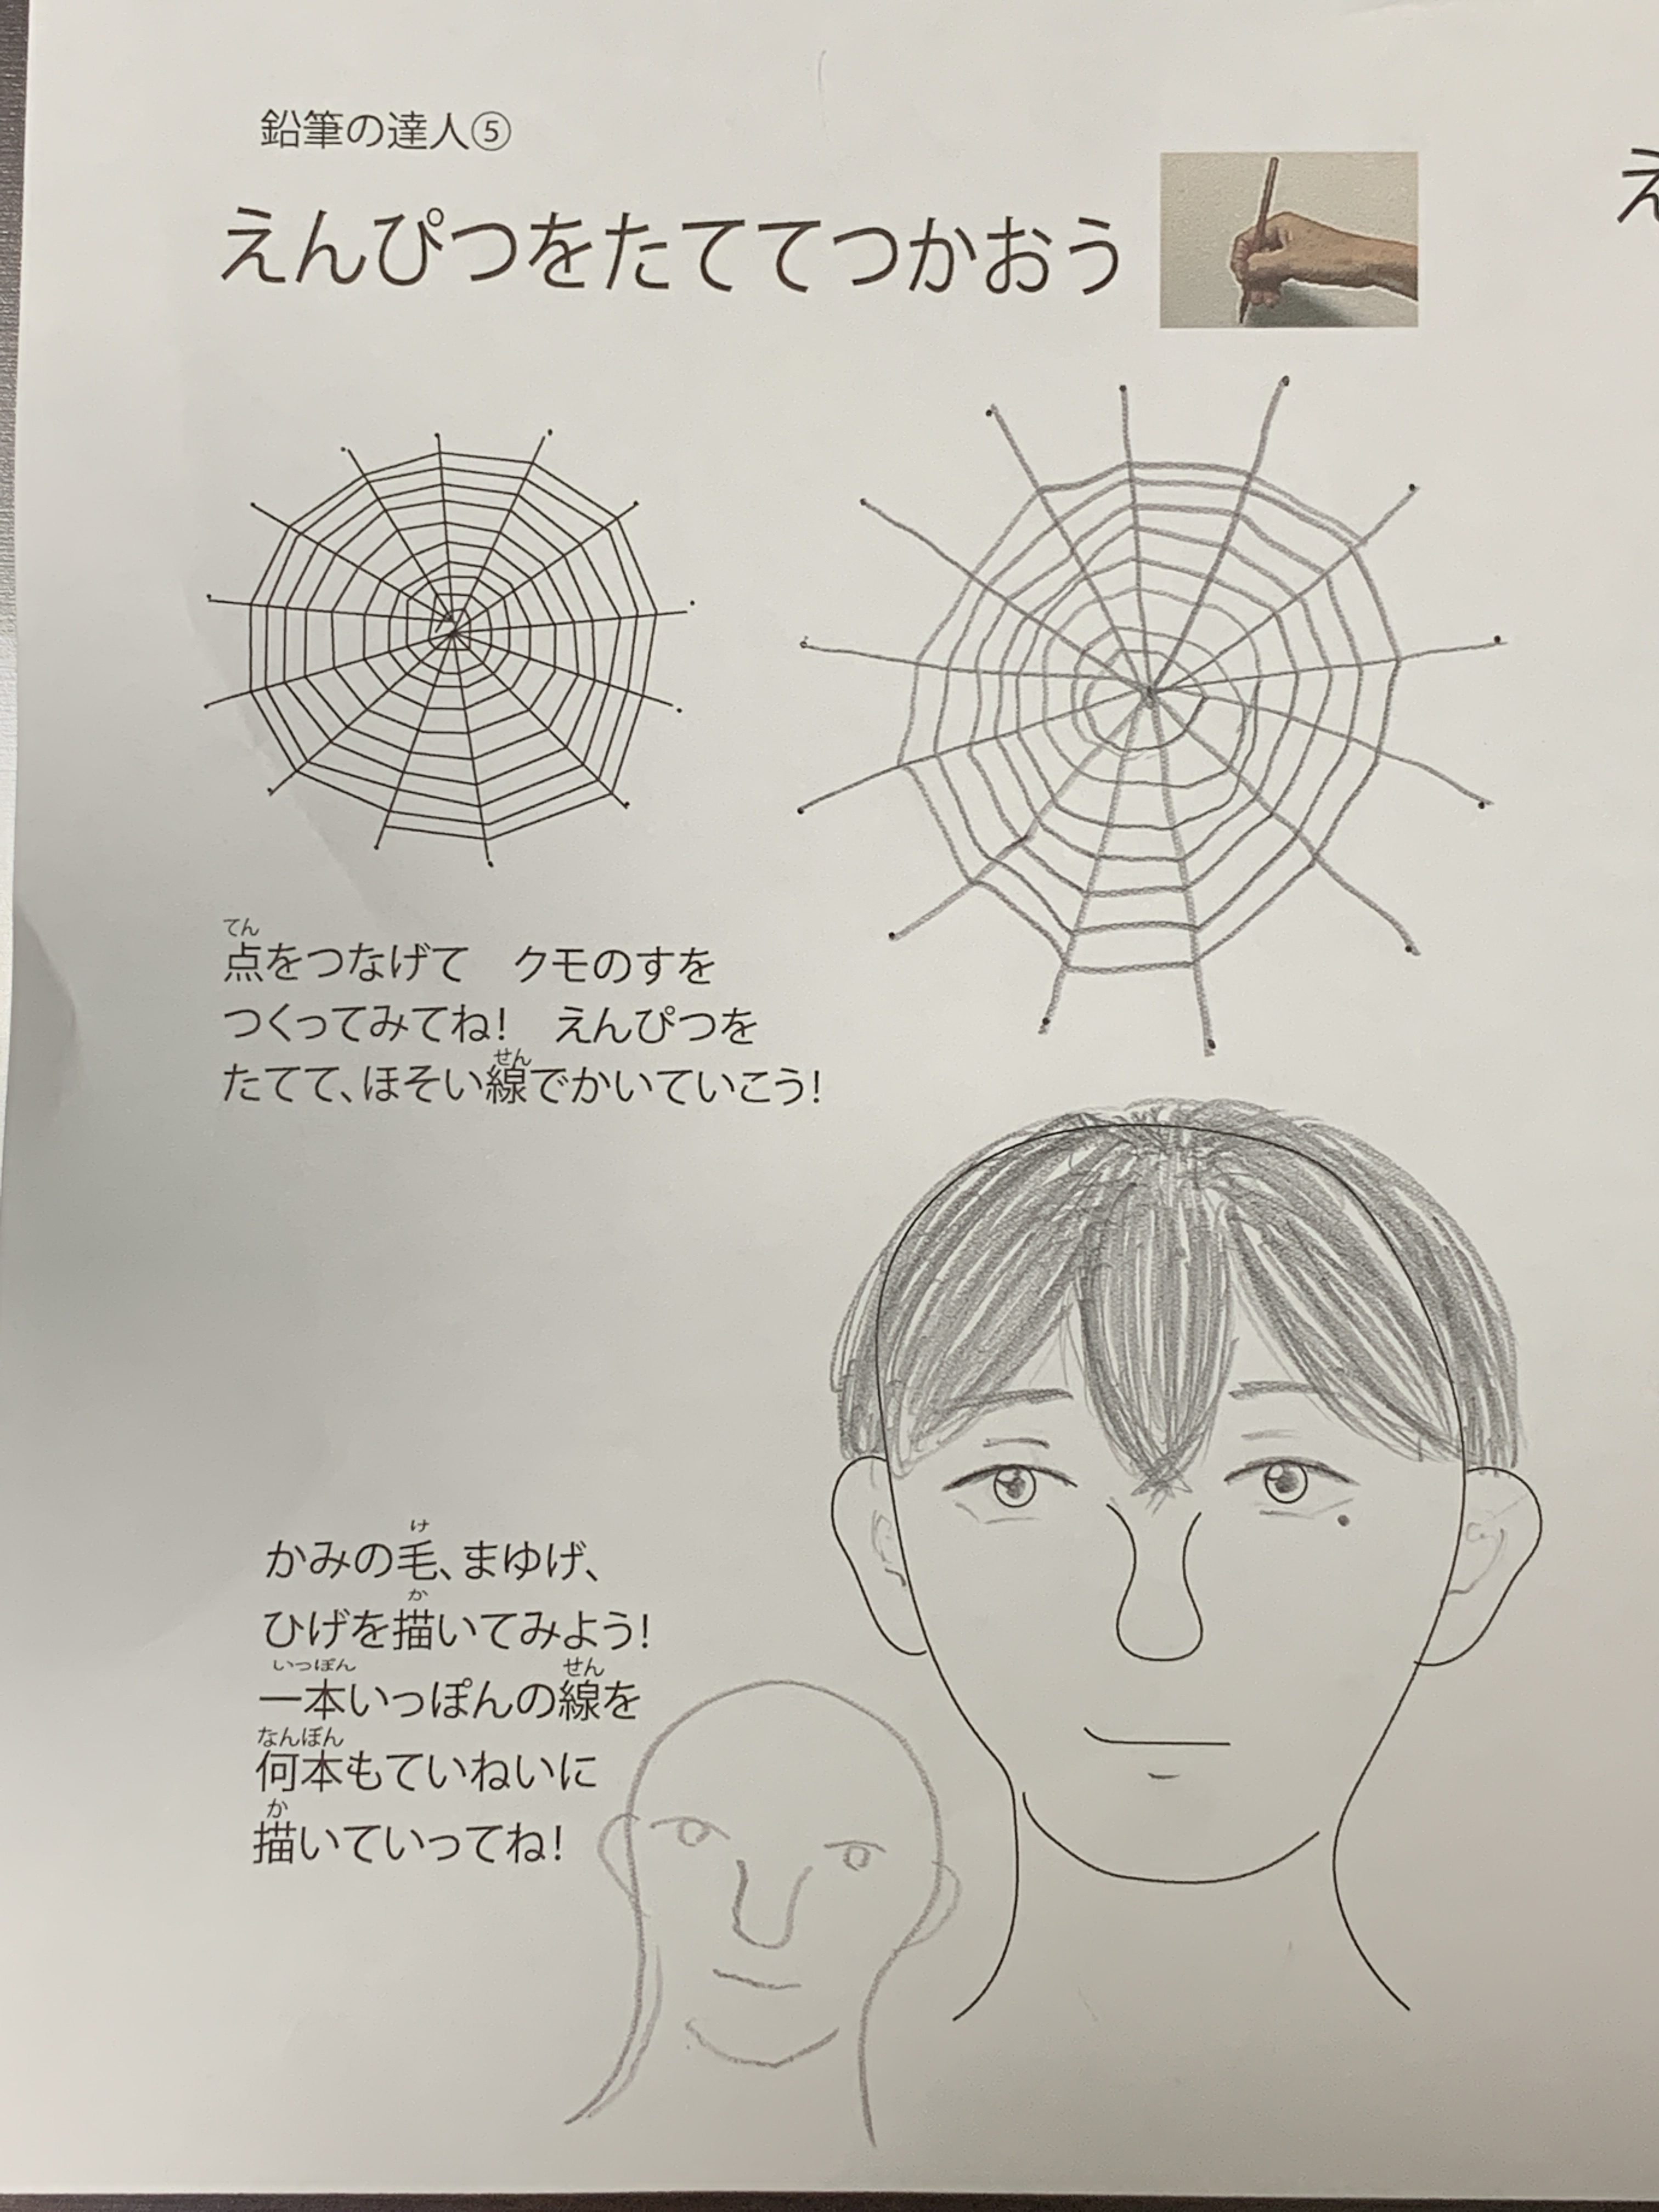 鉛筆の達人⑤
えんぴつをたててつかおう
え
てん
点をつなげて　クモのすを
つくってみてね！　えんぴつを
せん
たてて、ほそい線でかいていこう！
け
かみの毛、まゆげ、
か
ひげを描いてみよう！
いっぽん　せん
一本いっぽんの線を
なんぼん
何本もていねいに
か
描いていってね！